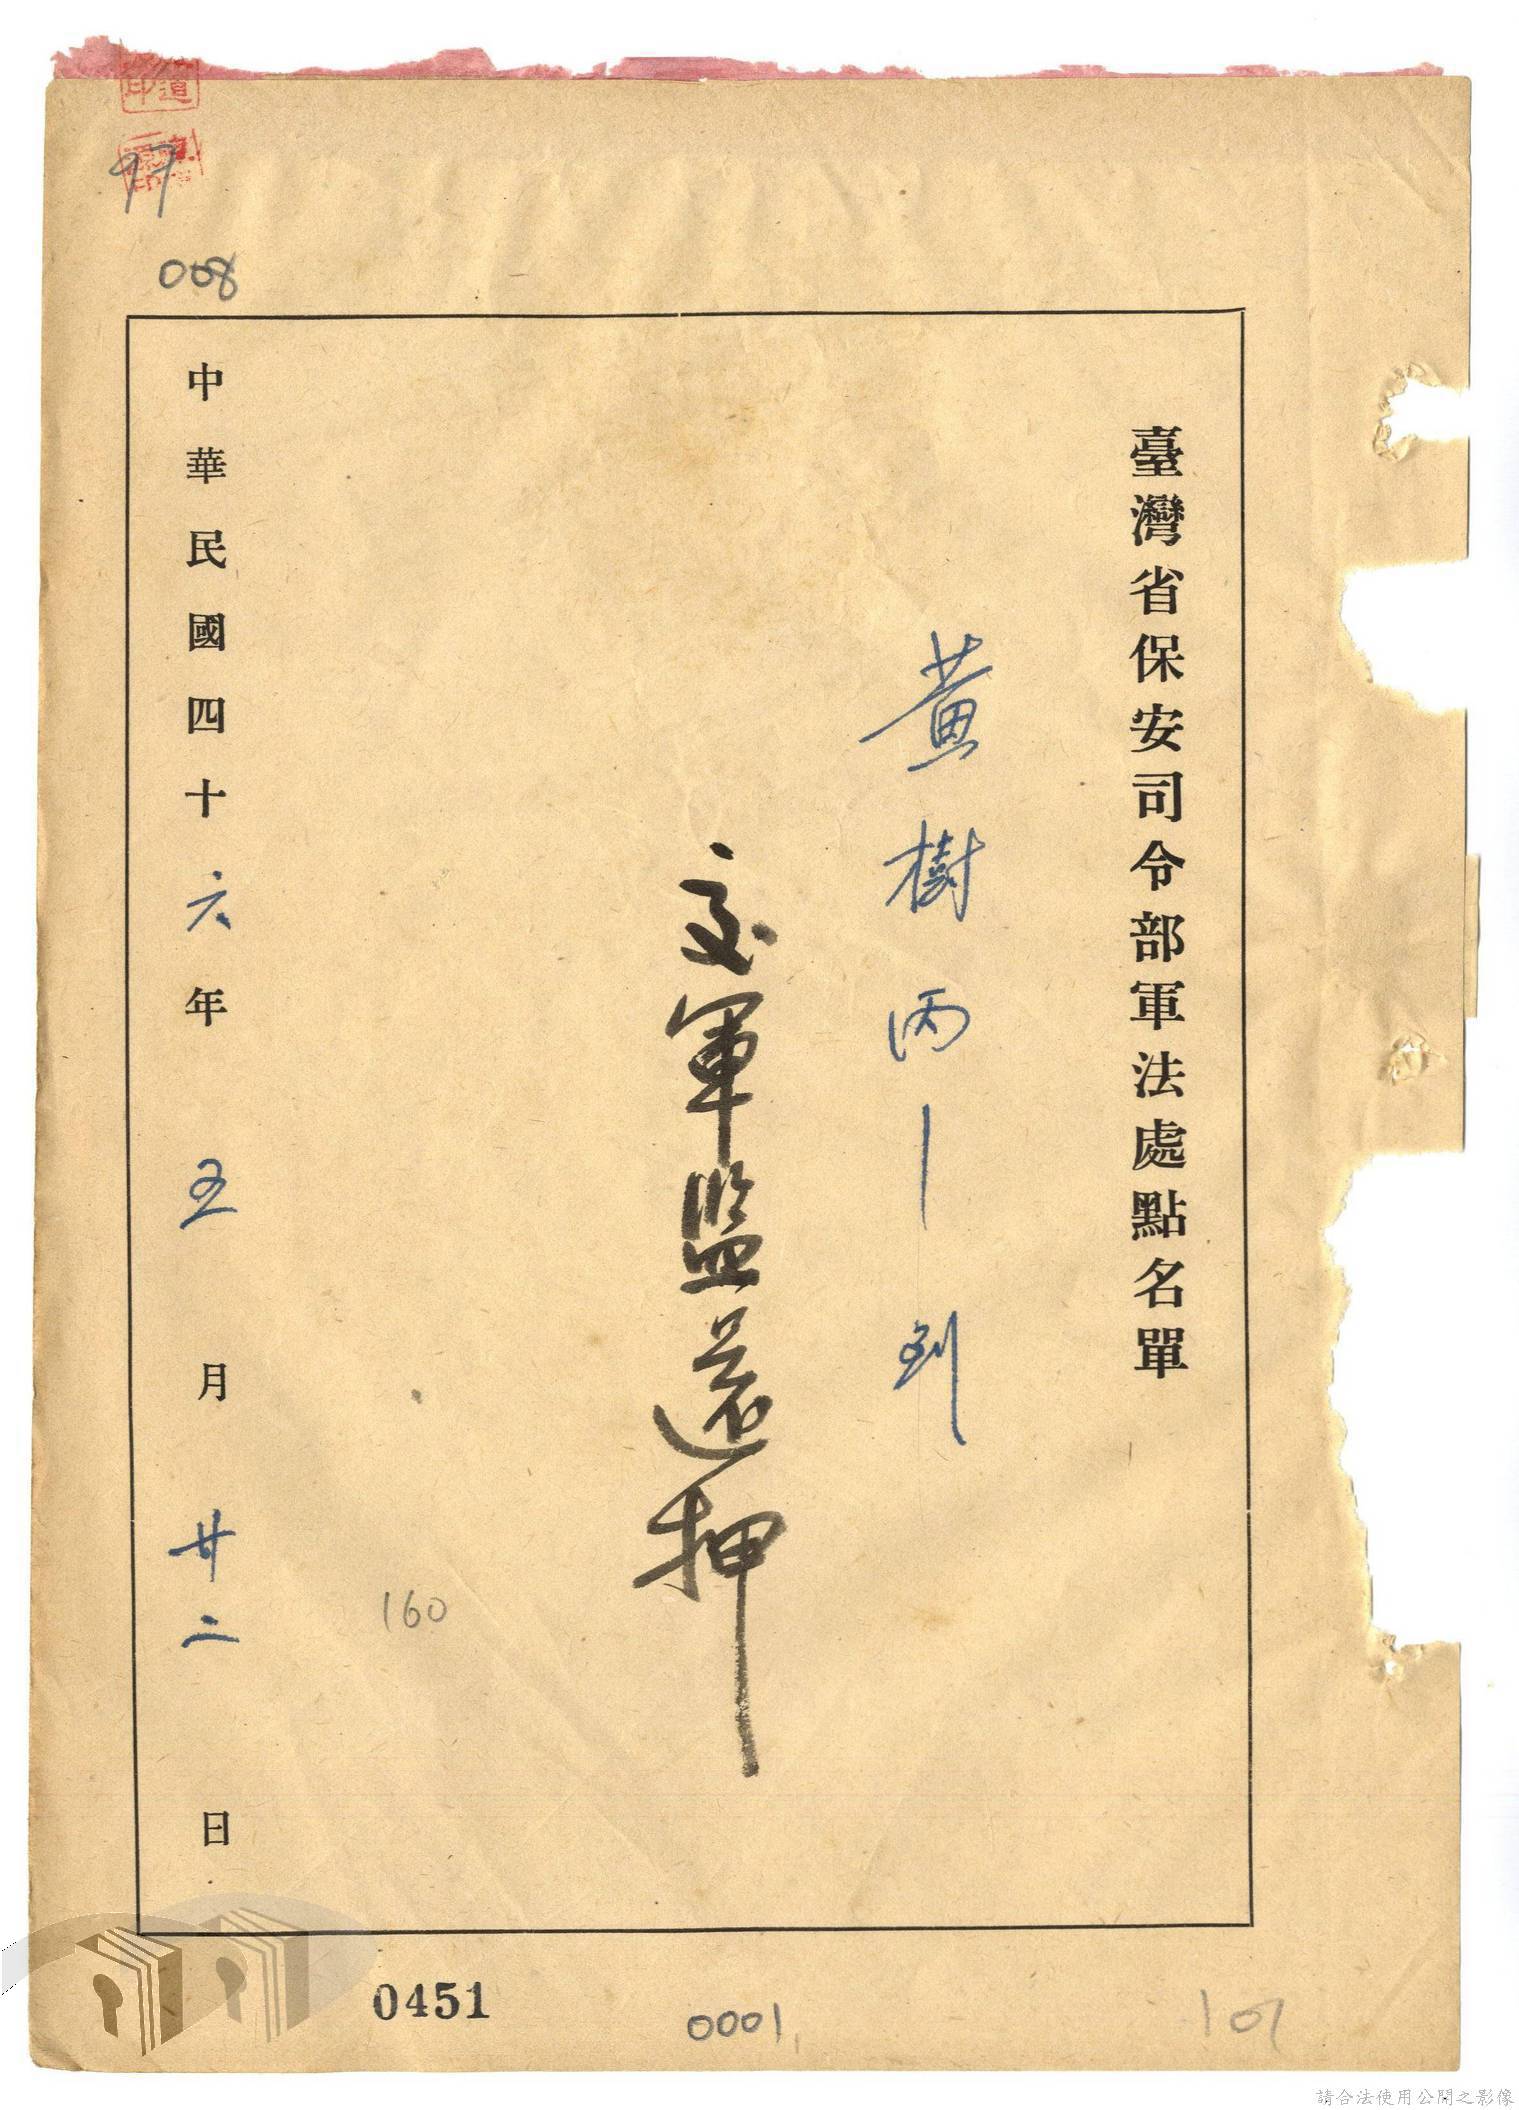 臺灣省保安司令部軍法處點名單
黃樹丙—到
交軍監還押
中華民國四十六年五月廿二日
97
008
160
0451
0001
101
請合法使用公開之影像